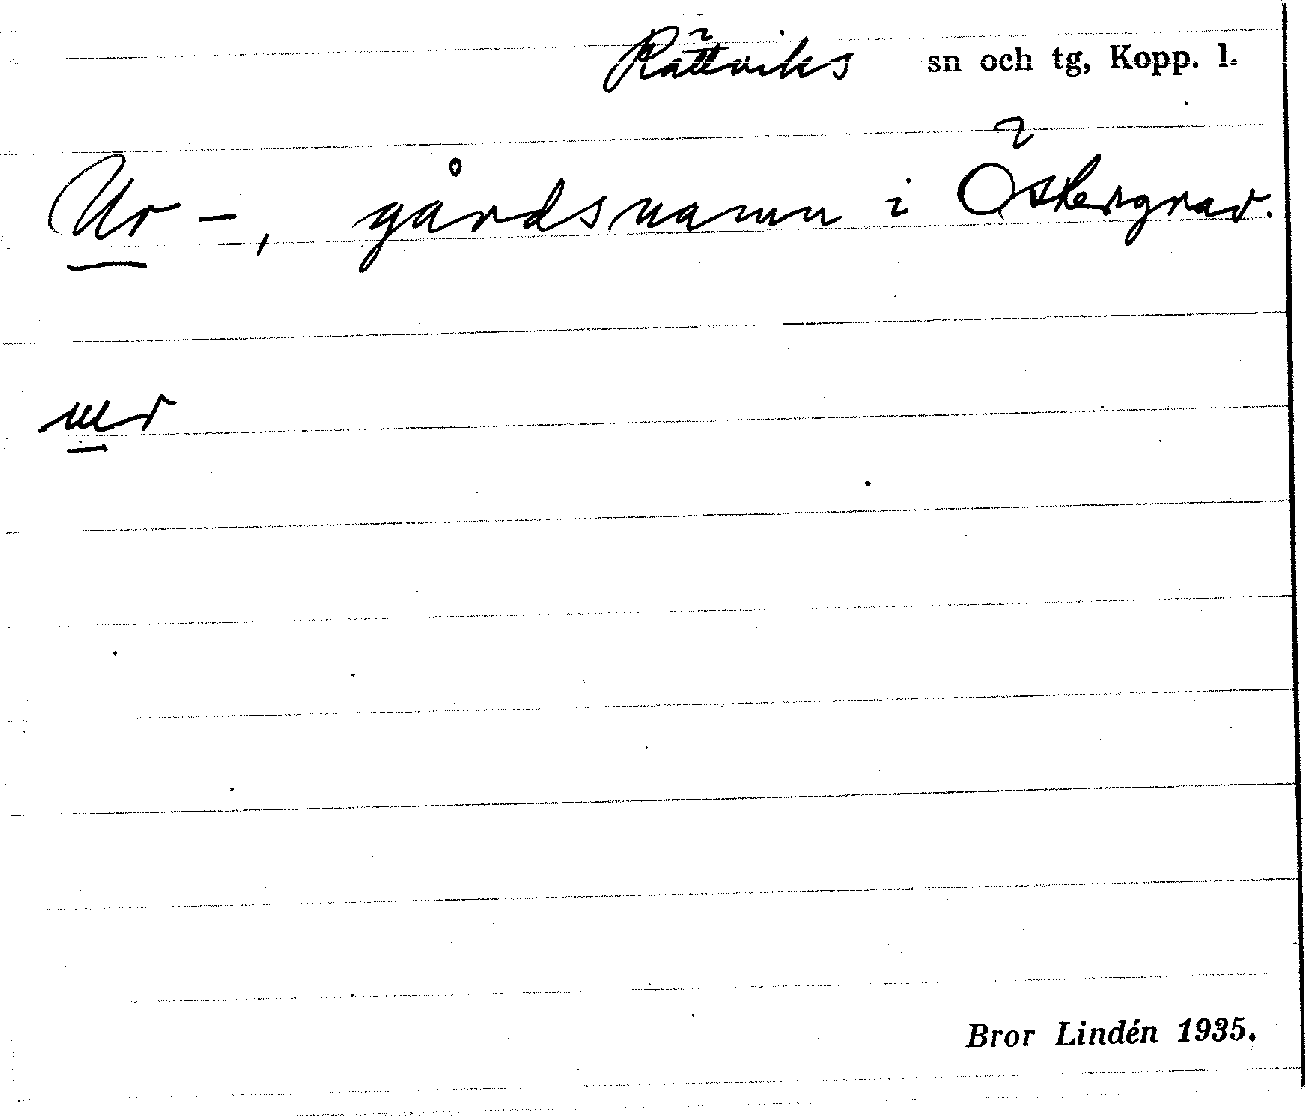 Rättviks sn och tg, Kopp. l.
Ur-, gårdsnamn i Östergrav.
ur
Bror Lindén 1935.